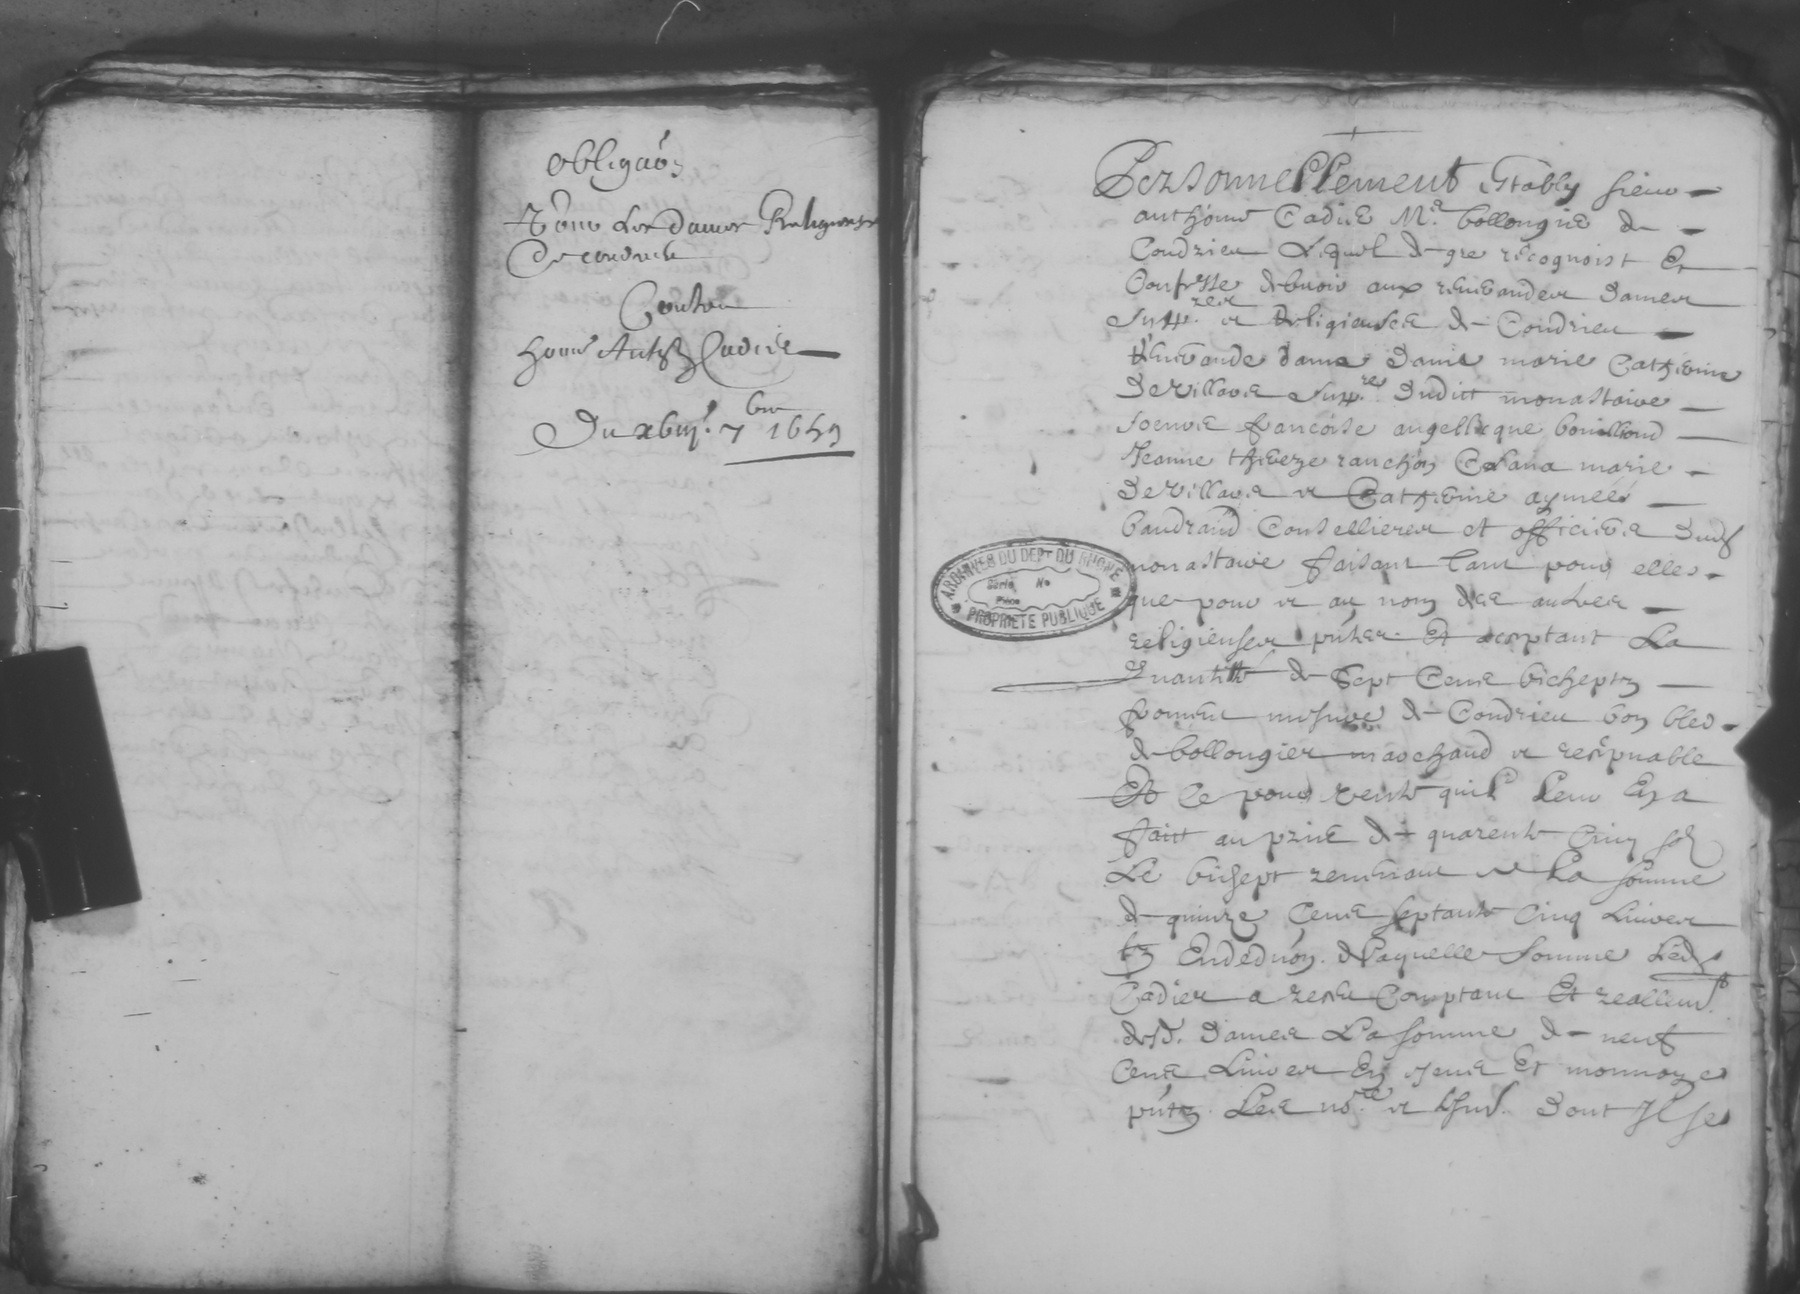 obligaõn
Pour Les Dames Religieuses
De condrieu
Contre
honne Anthe Cadier
Du xbiije 7bre 1659
Personnellement Estably sieur
anthoine Cadier Me bollongier de
Condrieu Lequel de gre recognoist Et
Confesse debvoir aux reverandes dames
Supp.res et Religieuses de Condrieu
reverande dame dame marie Catherine
De Villars Supp.re dudict monastaire
soeurs francoise angellicque bouilloud
Jeanne thereze ranchon marie
De Villars et Catherine aymeé
baudrand Consellieres et officieres dud
monastaire faisant tant pour elles
que pour et au nom des autres
religieuses pntes Et aceptant La
quantité de Sept Cens bichepts
froment mesure de Condrieu bon bled
de bollongier marchand et recepuable
Et Ce pour vente quil Leur En a
faict au prix de quarente Cinq sol
Le bichept revenant et La somme
de quinze Cens septante Cinq Livres
tz En dedõn de Laquelle somme Led
Cadier a Comptant Et reallem.t
desd. dames La somme de neuf
Cens Livres En Et monnoye
pnts Les no.re et dont Il se
ARCHIVES DU DEPT DU RHONE
Série No
Pièce
PROPRIETE PUBLIQUE